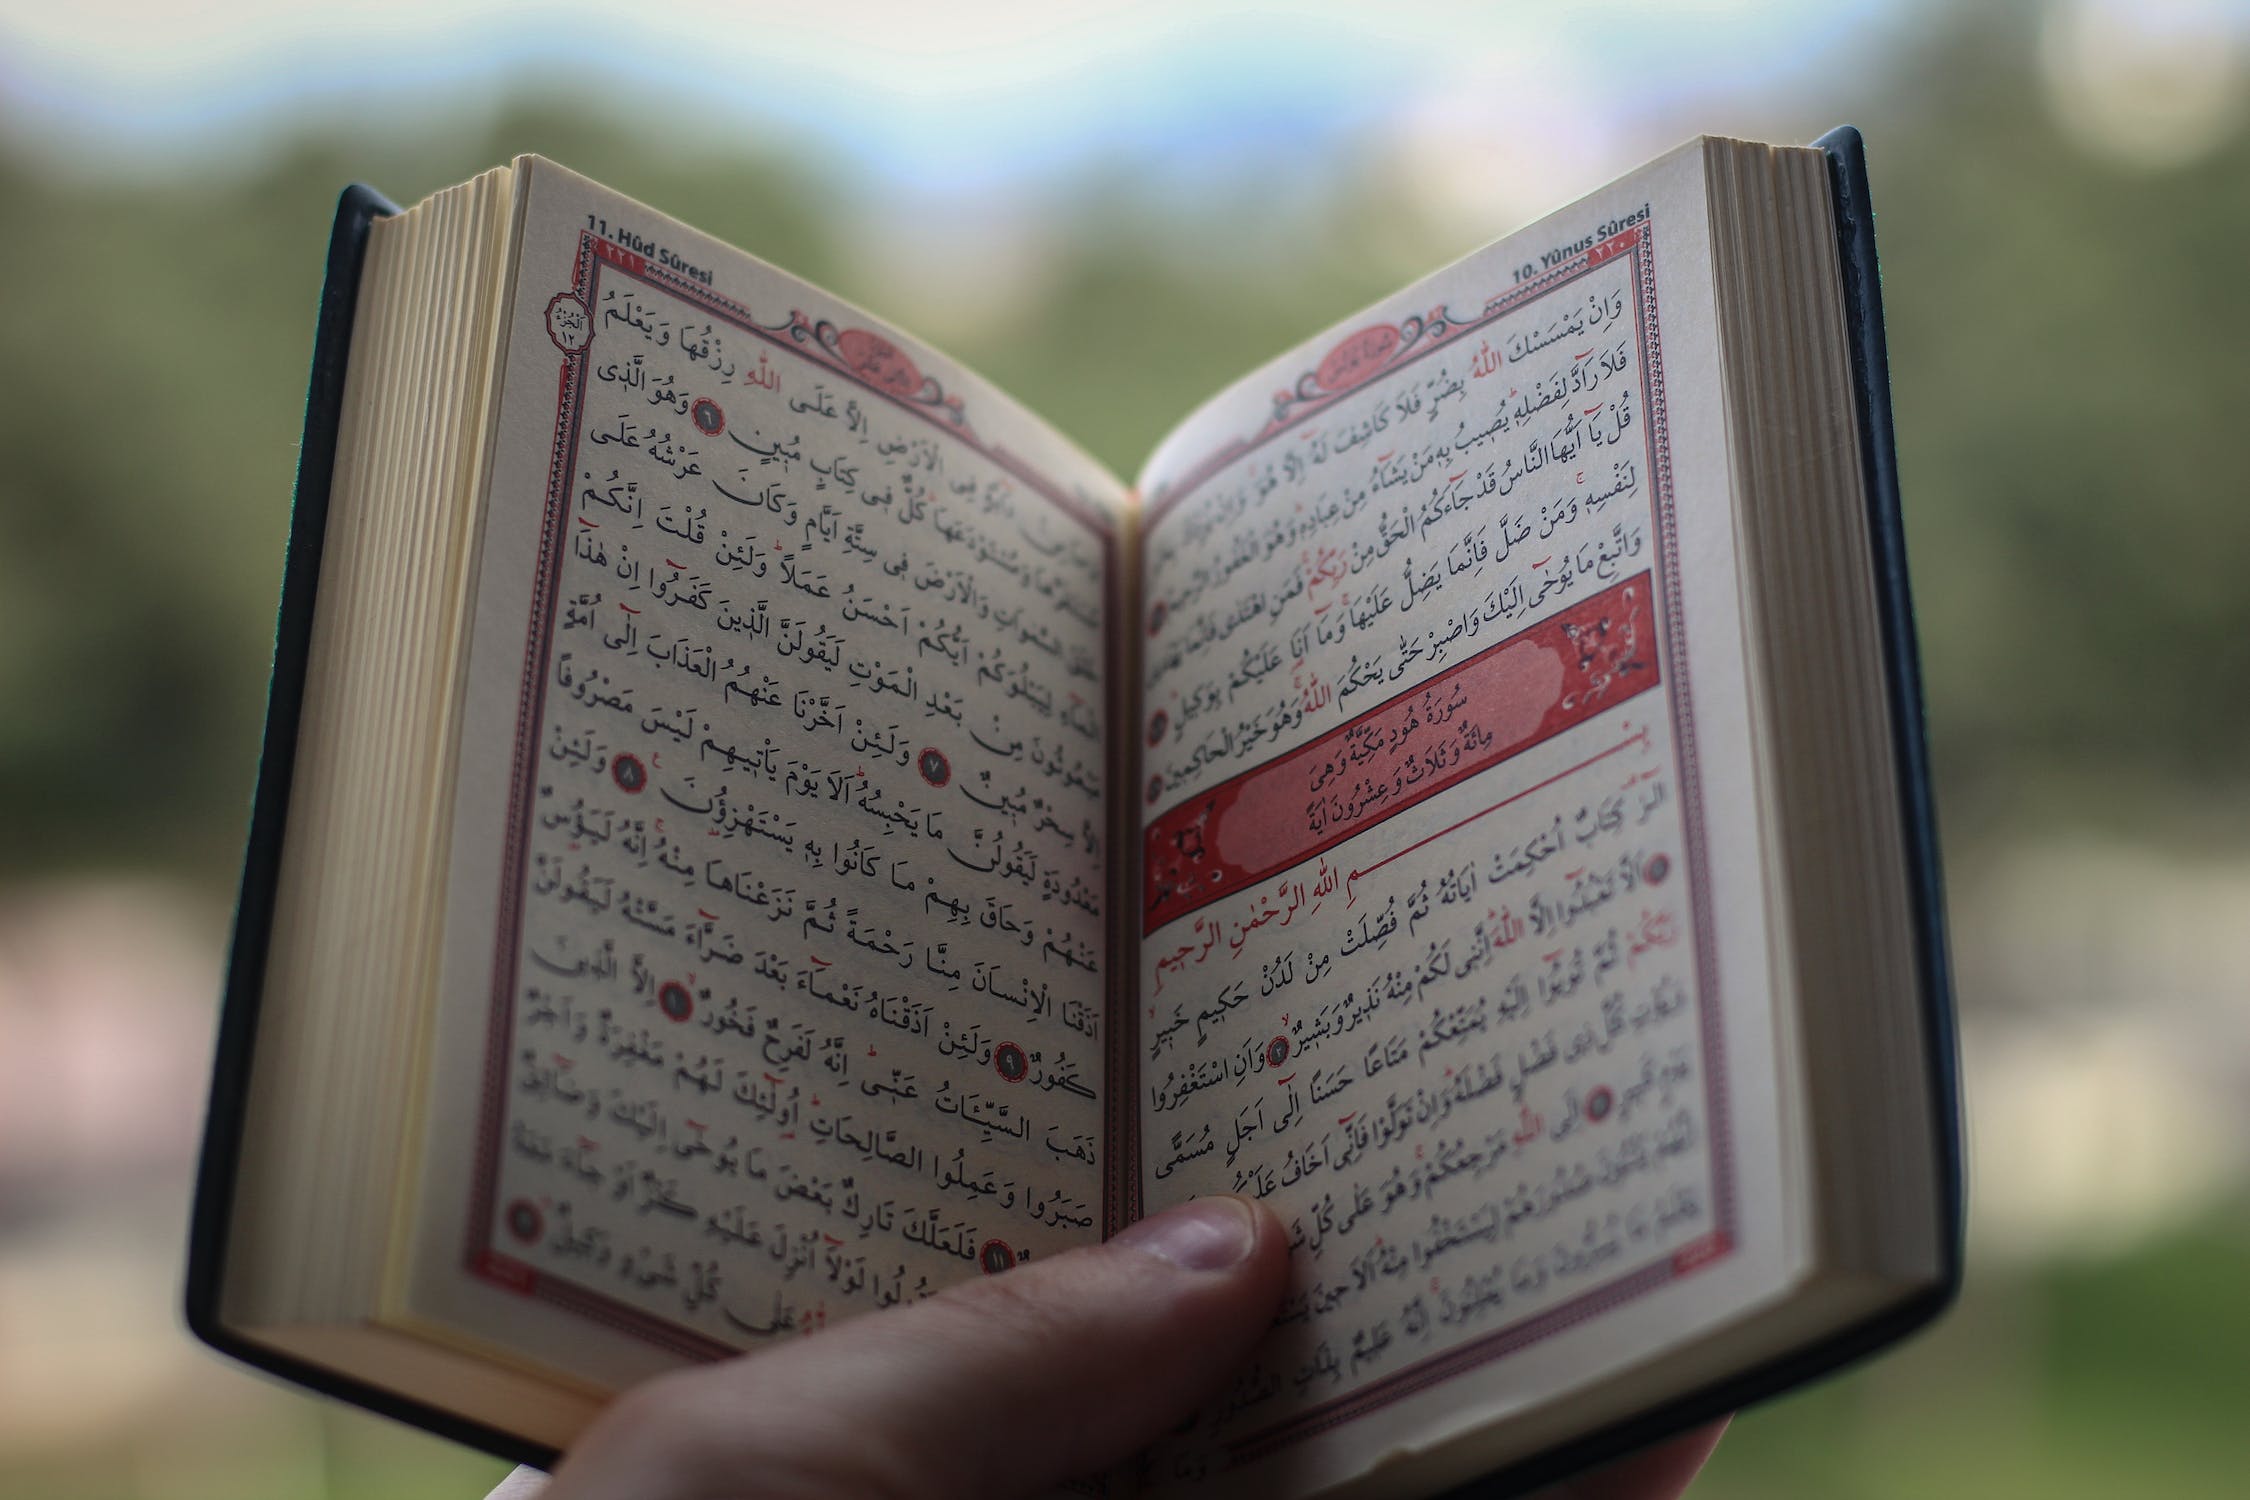 10. Yûnus Sûresi
٢٢٠
سُورَةُ يُونُسَ
وَاِنْ يَمْسَسْكَ اللّٰهُ بِضُرٍّ فَلَا كَاشِفَ لَهُٓ اِلَّا هُوَۚ وَاِنْ
فَلَا رَٓادَّ لِفَضْلِه۪ۜ يُص۪يبُ بِه۪ مَنْ يَشَٓاءُ مِنْ عِبَادِه۪ۜ وَهُوَ الْغَفُورُ الرَّح۪يمُ
قُلْ يَٓا اَيُّهَا النَّاسُ قَدْ جَٓاءَكُمُ الْحَقُّ مِنْ رَبِّكُمْۚ فَمَنِ اهْتَدٰى فَاِنَّمَا يَهْتَد۪ي
لِنَفْسِه۪ۚ وَمَنْ ضَلَّ فَاِنَّمَا يَضِلُّ عَلَيْهَاۚ وَمَٓا اَنَا۬ عَلَيْكُمْ بِوَك۪يلٍۜ
وَاتَّبِعْ مَا يُوحٰٓى اِلَيْكَ وَاصْبِرْ حَتّٰى يَحْكُمَ اللّٰهُۚ وَهُوَ خَيْرُ الْحَاكِم۪ينَ
سُورَةُ هُودٍ مَكِّيَّةٌ وَهِيَ
مِائَةٌ وَثَلَاثٌ وَعِشْرُونَ اٰيَةً
بِسْمِ اللّٰهِ الرَّحْمٰنِ الرَّح۪يمِ
الٓرٰ۠ كِتَابٌ اُحْكِمَتْ اٰيَاتُهُ ثُمَّ فُصِّلَتْ مِنْ لَدُنْ حَك۪يمٍ خَب۪يرٍۙ
اَلَّا تَعْبُدُٓوا اِلَّا اللّٰهَۜ اِنَّن۪ي لَكُمْ مِنْهُ نَذ۪يرٌ وَبَش۪يرٌۙ ٢ وَاَنِ اسْتَغْفِرُوا
رَبَّكُمْ ثُمَّ تُوبُٓوا اِلَيْهِ يُمَتِّعْكُمْ مَتَاعًا حَسَنًا اِلٰٓى اَجَلٍ مُسَمًّى
وَيُؤْتِ كُلَّ ذ۪ي فَضْلٍ فَضْلَهُۜ وَاِنْ تَوَلَّوْا فَاِنّ۪ٓي اَخَافُ
اِلَى اللّٰهِ مَرْجِعُكُمْۚ وَهُوَ عَلٰى كُلِّ
اِنَّهُمْ يَثْنُونَ صُدُورَهُمْ لِيَسْتَخْفُوا مِنْهُۜ اَلَا ح۪ينَ
يَعْلَمُ مَا يُسِرُّونَ وَمَا يُعْلِنُونَۚ اِنَّهُ عَل۪يمٌ بِذَاتِ الصُّدُورِ
11. Hûd Sûresi
٢٢١
اَلْجُزْءُ
١٢
دَٓابَّةٍ فِي الْاَرْضِ اِلَّا عَلَى اللّٰهِ رِزْقُهَا وَيَعْلَمُ
وَمُسْتَوْدَعَهَاۜ كُلٌّ ف۪ي كِتَابٍ مُب۪ينٍ ٦ وَهُوَ الَّذ۪ي
خَلَقَ السَّمٰوَاتِ وَالْاَرْضَ ف۪ي سِتَّةِ اَيَّامٍ وَكَانَ عَرْشُهُ عَلَى
الْمَٓاءِ لِيَبْلُوَكُمْ اَيُّكُمْ اَحْسَنُ عَمَلًاۜ وَلَئِنْ قُلْتَ اِنَّكُمْ
مَبْعُوثُونَ مِنْ بَعْدِ الْمَوْتِ لَيَقُولَنَّ الَّذ۪ينَ كَفَرُٓوا اِنْ هٰذَٓا
اِلَّا سِحْرٌ مُب۪ينٌ ٧ وَلَئِنْ اَخَّرْنَا عَنْهُمُ الْعَذَابَ اِلٰٓى اُمَّةٍ
مَعْدُودَةٍ لَيَقُولُنَّ مَا يَحْبِسُهُۜ اَلَا يَوْمَ يَأْت۪يهِمْ لَيْسَ مَصْرُوفًا
عَنْهُمْ وَحَاقَ بِهِمْ مَا كَانُوا بِه۪ يَسْتَهْزِؤُ۫نَ۟ ٨ وَلَئِنْ
اَذَقْنَا الْاِنْسَانَ مِنَّا رَحْمَةً ثُمَّ نَزَعْنَاهَا مِنْهُۚ اِنَّهُ لَيَؤُ۫سٌ
كَفُورٌ ٩ وَلَئِنْ اَذَقْنَاهُ نَعْمَٓاءَ بَعْدَ ضَرَّٓاءَ مَسَّتْهُ لَيَقُولَنَّ
ذَهَبَ السَّيِّـَٔاتُ عَنّ۪يۜ اِنَّهُ لَفَرِحٌ فَخُورٌۙ ١٠ اِلَّا الَّذ۪ينَ
صَبَرُوا وَعَمِلُوا الصَّالِحَاتِۜ اُو۬لٰٓئِكَ لَهُمْ مَغْفِرَةٌ وَاَجْرٌ
١١ فَلَعَلَّكَ تَارِكٌ بَعْضَ مَا يُوحٰٓى اِلَيْكَ وَضَٓائِقٌ
لَوْلَٓا اُنْزِلَ عَلَيْهِ كَنْزٌ اَوْ جَٓاءَ مَعَهُ
عَلٰى كُلِّ شَيْءٍ وَك۪يلٌۜ